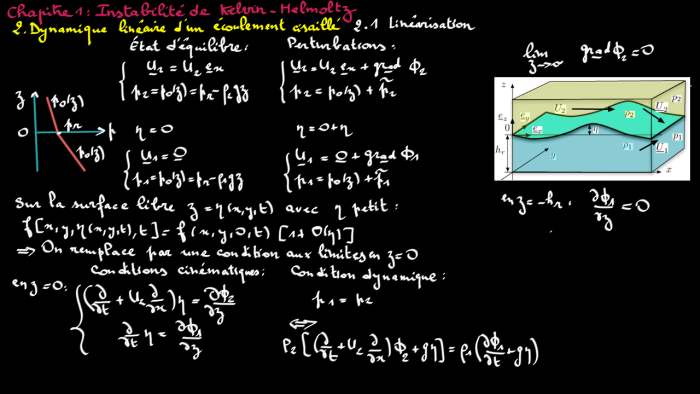 Chapitre 1: Instabilité de Kelvin-Helmoltz
2. Dynamique linéaire d'un écoulement cisaillé 2.1 Linéarisation
État d'équilibre: Perturbations:
lim z→∞ grad Φ2 = 0
U2 = U2 ex
U2 = U2 ex + grad Φ2
p2 = p0(z) = pr - ρ2gz
p2 = p0(z) + p̃2
z p0(z) pr
0 p
p0(z)
η = 0
η = 0 + η
U1 = 0
U1 = 0 + grad Φ1
p1 = p0(z) = pr - ρ1gz
p1 = p0(z) + p̃1
z U2 ρ2 p2 U2
ez ey
0 ex η p1
hr y ρ1 U1
x
en z = -hr: ∂Φ1/∂z = 0
Sur la surface libre z = η(x,y,t) avec η petit:
f[x,y,η(x,y,t),t] = f(x,y,0,t) [1 + O(η)]
⇒ On remplace par une condition aux limites en z = 0
Conditions cinématiques: Condition dynamique:
en z = 0:
(∂/∂t + U2 ∂/∂x) η = ∂Φ2/∂z
p1 = p2
∂/∂t η = ∂Φ1/∂z
⟺
ρ2 [(∂/∂t + U2 ∂/∂x) Φ2 + gη] = ρ1 (∂Φ1/∂t + gη)